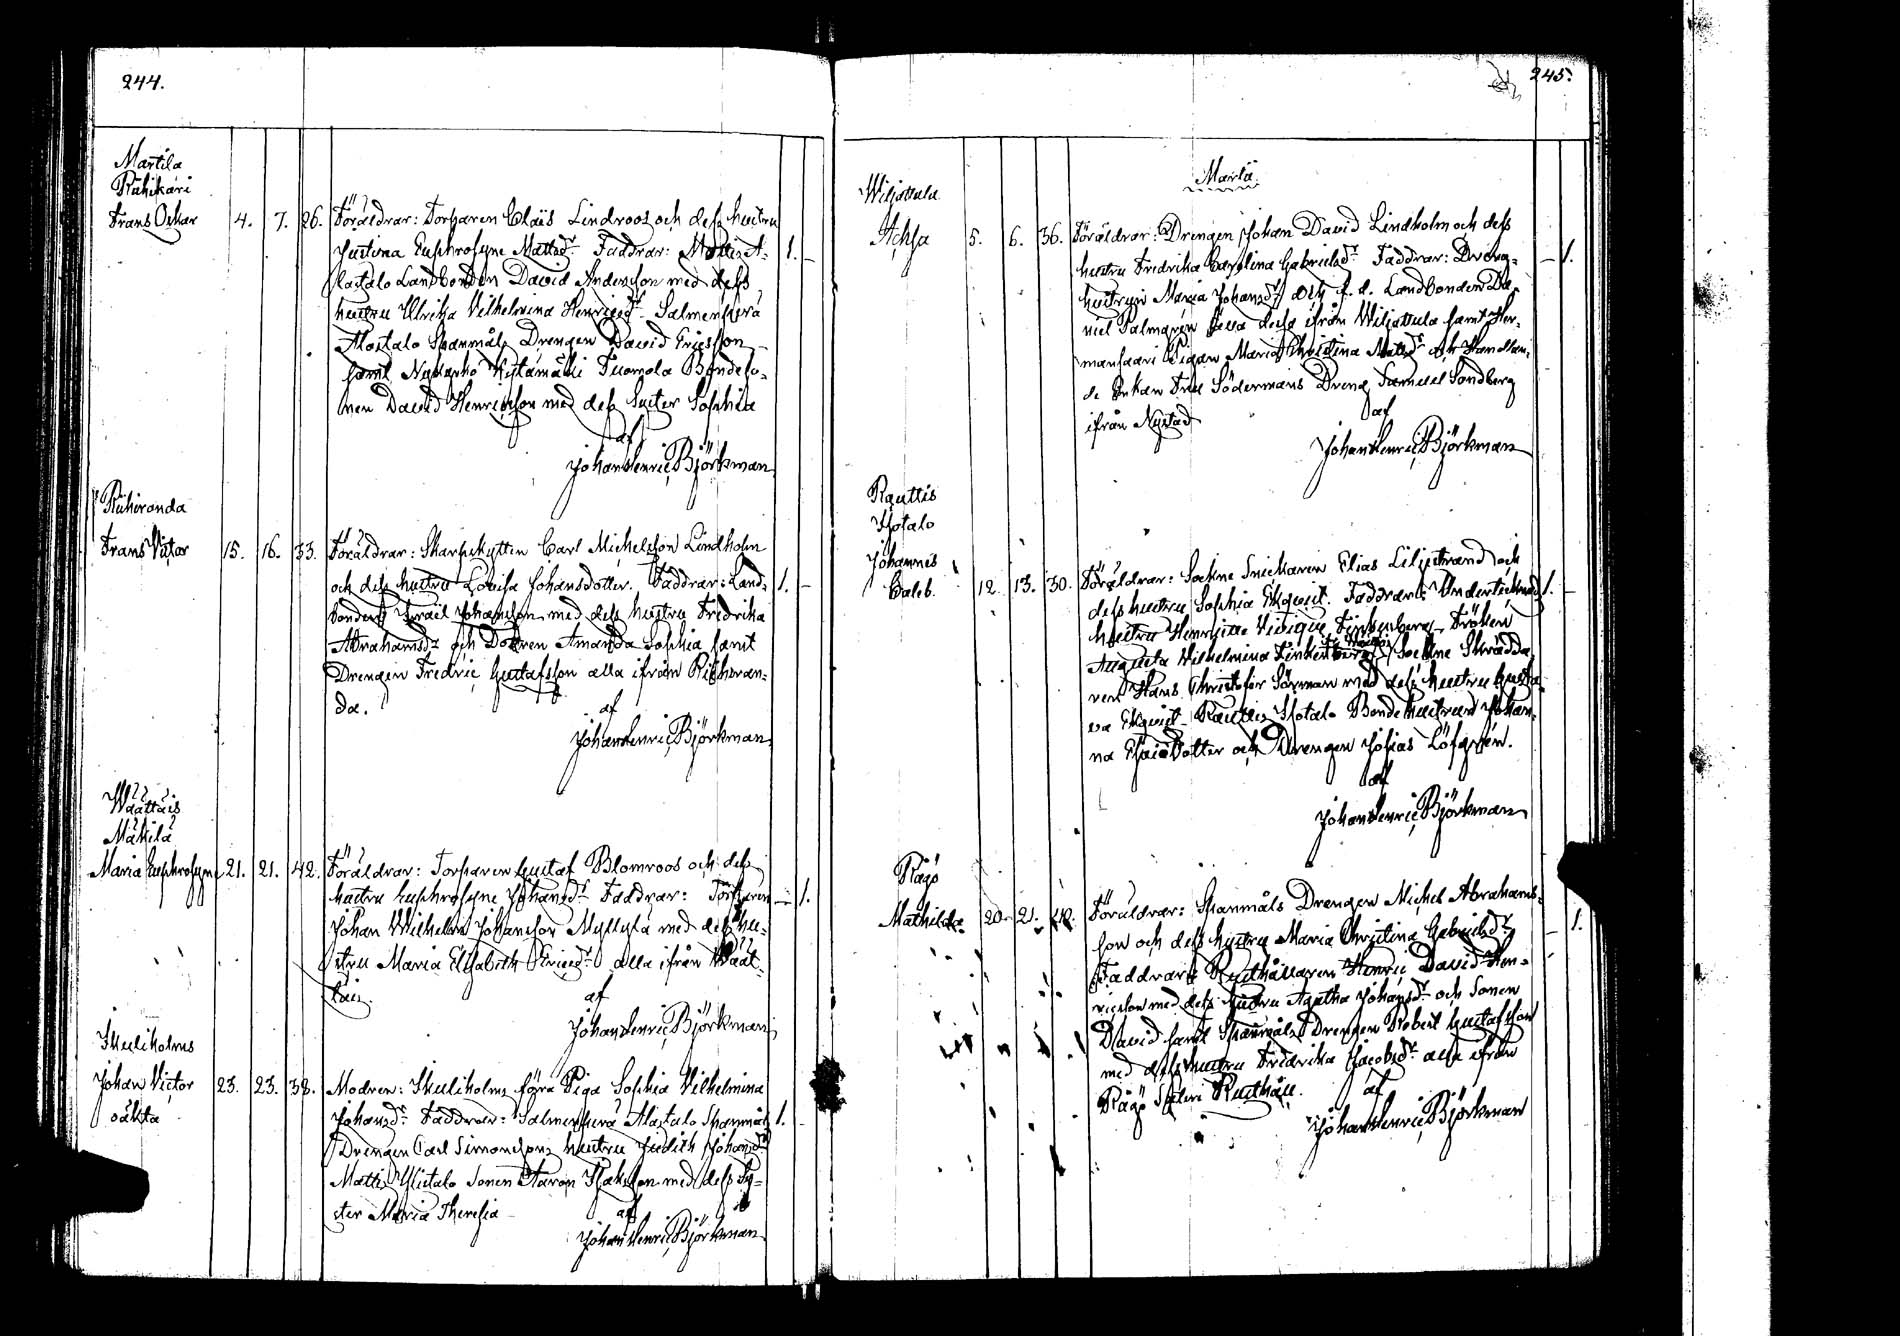 244.
Martila
Riihikari
Frans Oskar 4. 7. 26. Föräldrar: Torparen Claïs Lindroos och dess hustru
Justina Euphrosyne Mattsdr. Faddrar: Mattis A- 1. –
lastalo Landbonden David Andersson med dess
hustru Ulrika Vilhelmina Henricsdr. Salmensuu
Alastalo Spanmåls Drengen David Ericsson
samt Nykarko Tuomola Bondeso-
nen David Henricsson med dess Syster Sophia
af
Johan Henric Björkman
Riihiranda
Frans Victor 15. 16. 33. Föräldrar: Skarpskytten Carl Michelsson Lindholm
och dess hustru Lovisa Johansdotter. Faddrar: Land- 1. –
bonden Israël Johansson med dess hustru Fredrika
Abrahamsdr och Dottren Amanda Sophia samt
Drengen Fredric Gustafsson alla ifrån Riihiran-
da.
af
Johan Henric Björkman
Waattais
Mäkilä
Maria Euphrosyne 21. 21. 42. Föräldrar: Torparen Gustaf Blomroos och dess
hustru Euphrosyne Johansdr. Faddrar: Torparen – 1.
Johan Wilhelm Johansson Myllylä med dess hu-
stru Maria Elisabeth Ericsdr. alla ifrån Waat-
tais.
af
Johan Henric Björkman
Skuliholms
Johan Victor 23. 23. 38. Modren: Skuliholms förra Piga Sophia Vilhelmina
oäkta Johansdr. Faddrar: Salmensuu Alastalo Spanmåls 1. –
Drengen Carl Simonssons hustru Judith Johansdr
Mattis Ylistalo Sonen Aaron Isaksson med dess Sy-
ster Maria Theresia
af
Johan Henric Björkman
245.
Martii
Wiljattula
Achsa 5. 6. 36. Föräldrar: Drengen Johan David Lindholm och dess
hustru Fredrika Carolina Gabrielsdr. Faddrar: Dräng- – 1.
hustrun Maria Johansdr. och f. d. Landbonden Da-
niel Palmgrén alla dessa ifrån Wiljattula samt Her-
mansaari Pigan Maria Christina Mattsdr och Handlan-
de Enkan Fru Södermans Dreng Samuel Sandberg
ifrån Nystad
af
Johan Henric Björkman
Rauttis
Isotalo
Johannes
Caleb. 12. 13. 30. Föräldrar: Sockne Snickaren Elias Liljestrand och
dess hustru Sophia Ekqvist. Faddrar: Undertecknads 1. –
hustru Henriette Finkenberg, Fröken
Augusta Wilhelmina Finkenberg, Sockne Skrädda-
ren Hans Christofer Sörman med dess hustru Gusta-
va Ekqvist, Rauttis Isotalo Bondehustrun Johan-
na Esaiedotter och Drengen Josias Löfgrén.
af
Johan Henric Björkman
Rågö
Mathilda. 20. 21. 40. Föräldrar: Spanmåls Drengen Michel Abrahams-
son och dess hustru Maria Christina Gabrielsdr. – 1.
Faddrar: Rusthållaren Henric David Hen-
ricsson med dess hustru Agatha Johansdr. och Sonen
David samt Spanmåls Drengen Robert Gustafsson
med dess hustru Fredrika Jacobsdr. alla ifrån
Rågö Rusthåll.
af
Johan Henric Björkman